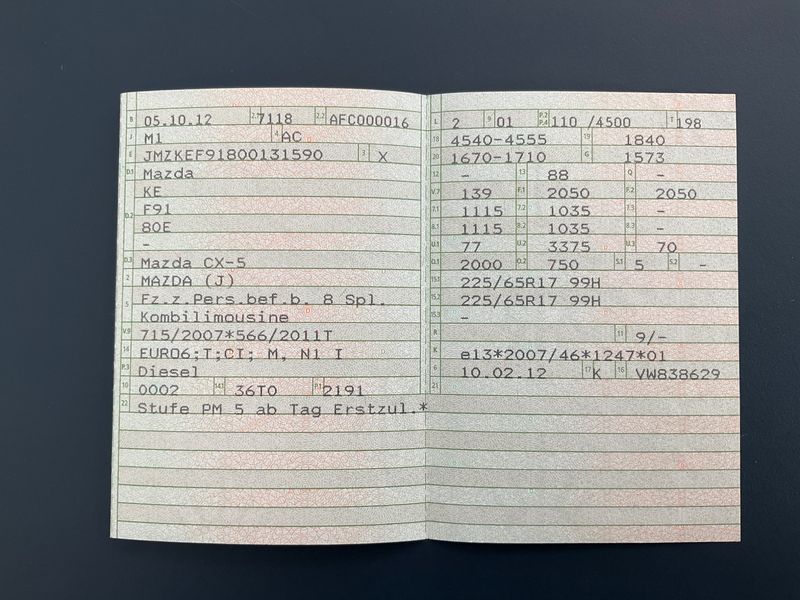 B 05.10.12 2.1 7118 2.2 AFC000016
J M1 4 AC
E JMZKEF91800131590 3 X
D.1 Mazda
KE
F91
D.2 80E
-
D.3 Mazda CX-5
2 MAZDA (J)
5 Fz.z.Pers.bef.b. 8 Spl.
Kombilimousine
V.9 715/2007*566/2011T
14 EURO6;T;CI; M, N1 I
P.3 Diesel
10 0002 14.1 36T0 P.1 2191
22 Stufe PM 5 ab Tag Erstzul.*
L 2 9 01 P.2 P.4 110 /4500 T 198
18 4540-4555 19 1840
20 1670-1710 G 1573
12 - 13 88 Q -
V.7 139 F.1 2050 F.2 2050
7.1 1115 7.2 1035 7.3 -
8.1 1115 8.2 1035 8.3 -
U.1 77 U.2 3375 U.3 70
O.1 2000 O.2 750 S.1 5 S.2 -
15.1 225/65R17 99H
15.2 225/65R17 99H
15.3 -
R 11 9/-
K e13*2007/46*1247*01
6 10.02.12 17 K 16 VW838629
21